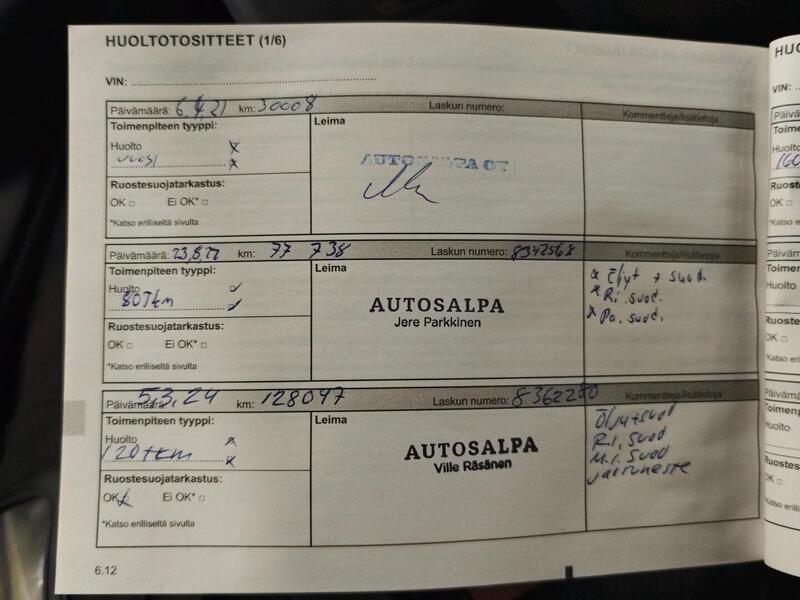 HUOLTOTOSITTEET (1/6)
VIN:
Päivämäärä: 6.4.21 km: 30008 Laskun numero: Kommentteja/lisätietoja
Toimenpiteen tyyppi: Leima
Huolto x
uusi x
AUTOSALPA OY
Ruostesuojatarkastus:
OK □ Ei OK* □
*Katso erilliseltä sivulta
Päivämäärä: 23.8.22 km: 77 738 Laskun numero: 8342568 Kommentteja/lisätietoja
Toimenpiteen tyyppi: Leima
Huolto
80Tkm
AUTOSALPA
Jere Parkkinen
x Öljyt + suod.
x Ri. suod.
x Pa. suod.
Ruostesuojatarkastus:
OK □ Ei OK* □
*Katso erilliseltä sivulta
Päivämäärä: 5.3.24 km: 128047 Laskun numero: 8362280 Kommentteja/lisätietoja
Toimenpiteen tyyppi: Leima
Huolto x
120tkm x
AUTOSALPA
Ville Räsänen
Öljy+suod
R.i. suod
M.i. suod
jarruneste
Ruostesuojatarkastus:
OK □ Ei OK* □
*Katso erilliseltä sivulta
6.12
VIN:
Huolto
OK □
Huolto
OK □
Huolto
OK □